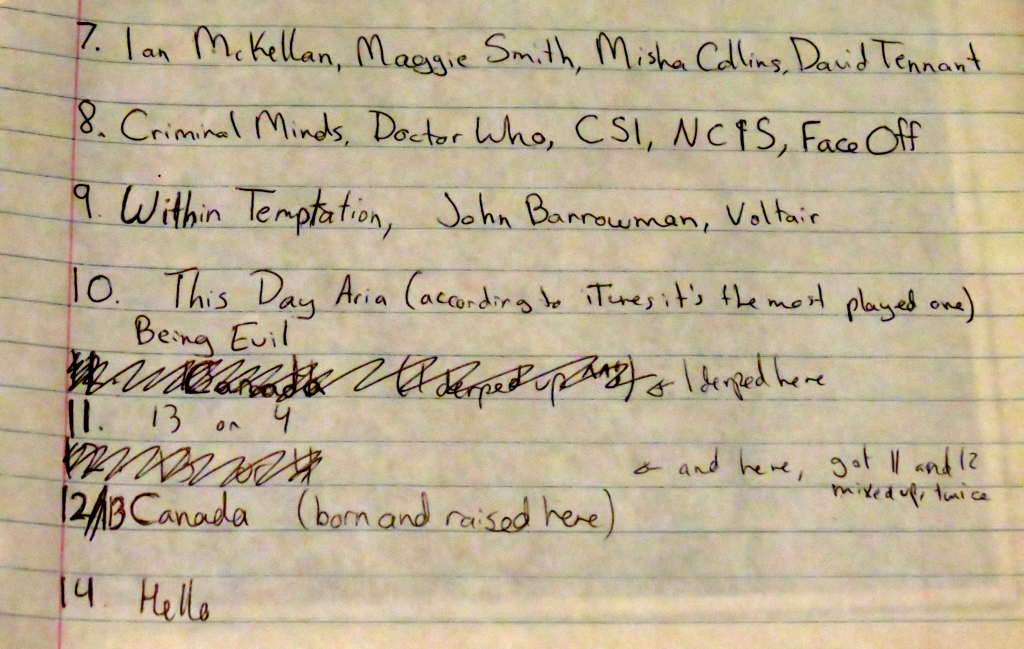 7. Ian McKellan, Maggie Smith, Misha Collins, David Tennant
8. Criminal Minds, Doctor Who, CSI, NCIS, Face Off
9. Within Temptation, John Barrowman, Voltair
10. This Day Aria (according to iTunes it's the most played one)
Being Evil
Canada (I derped up ← I derped here
11. 13 on 4
← and here, got 11 and 12
mixed up, twice
12/13 Canada (born and raised here)
14 Hello